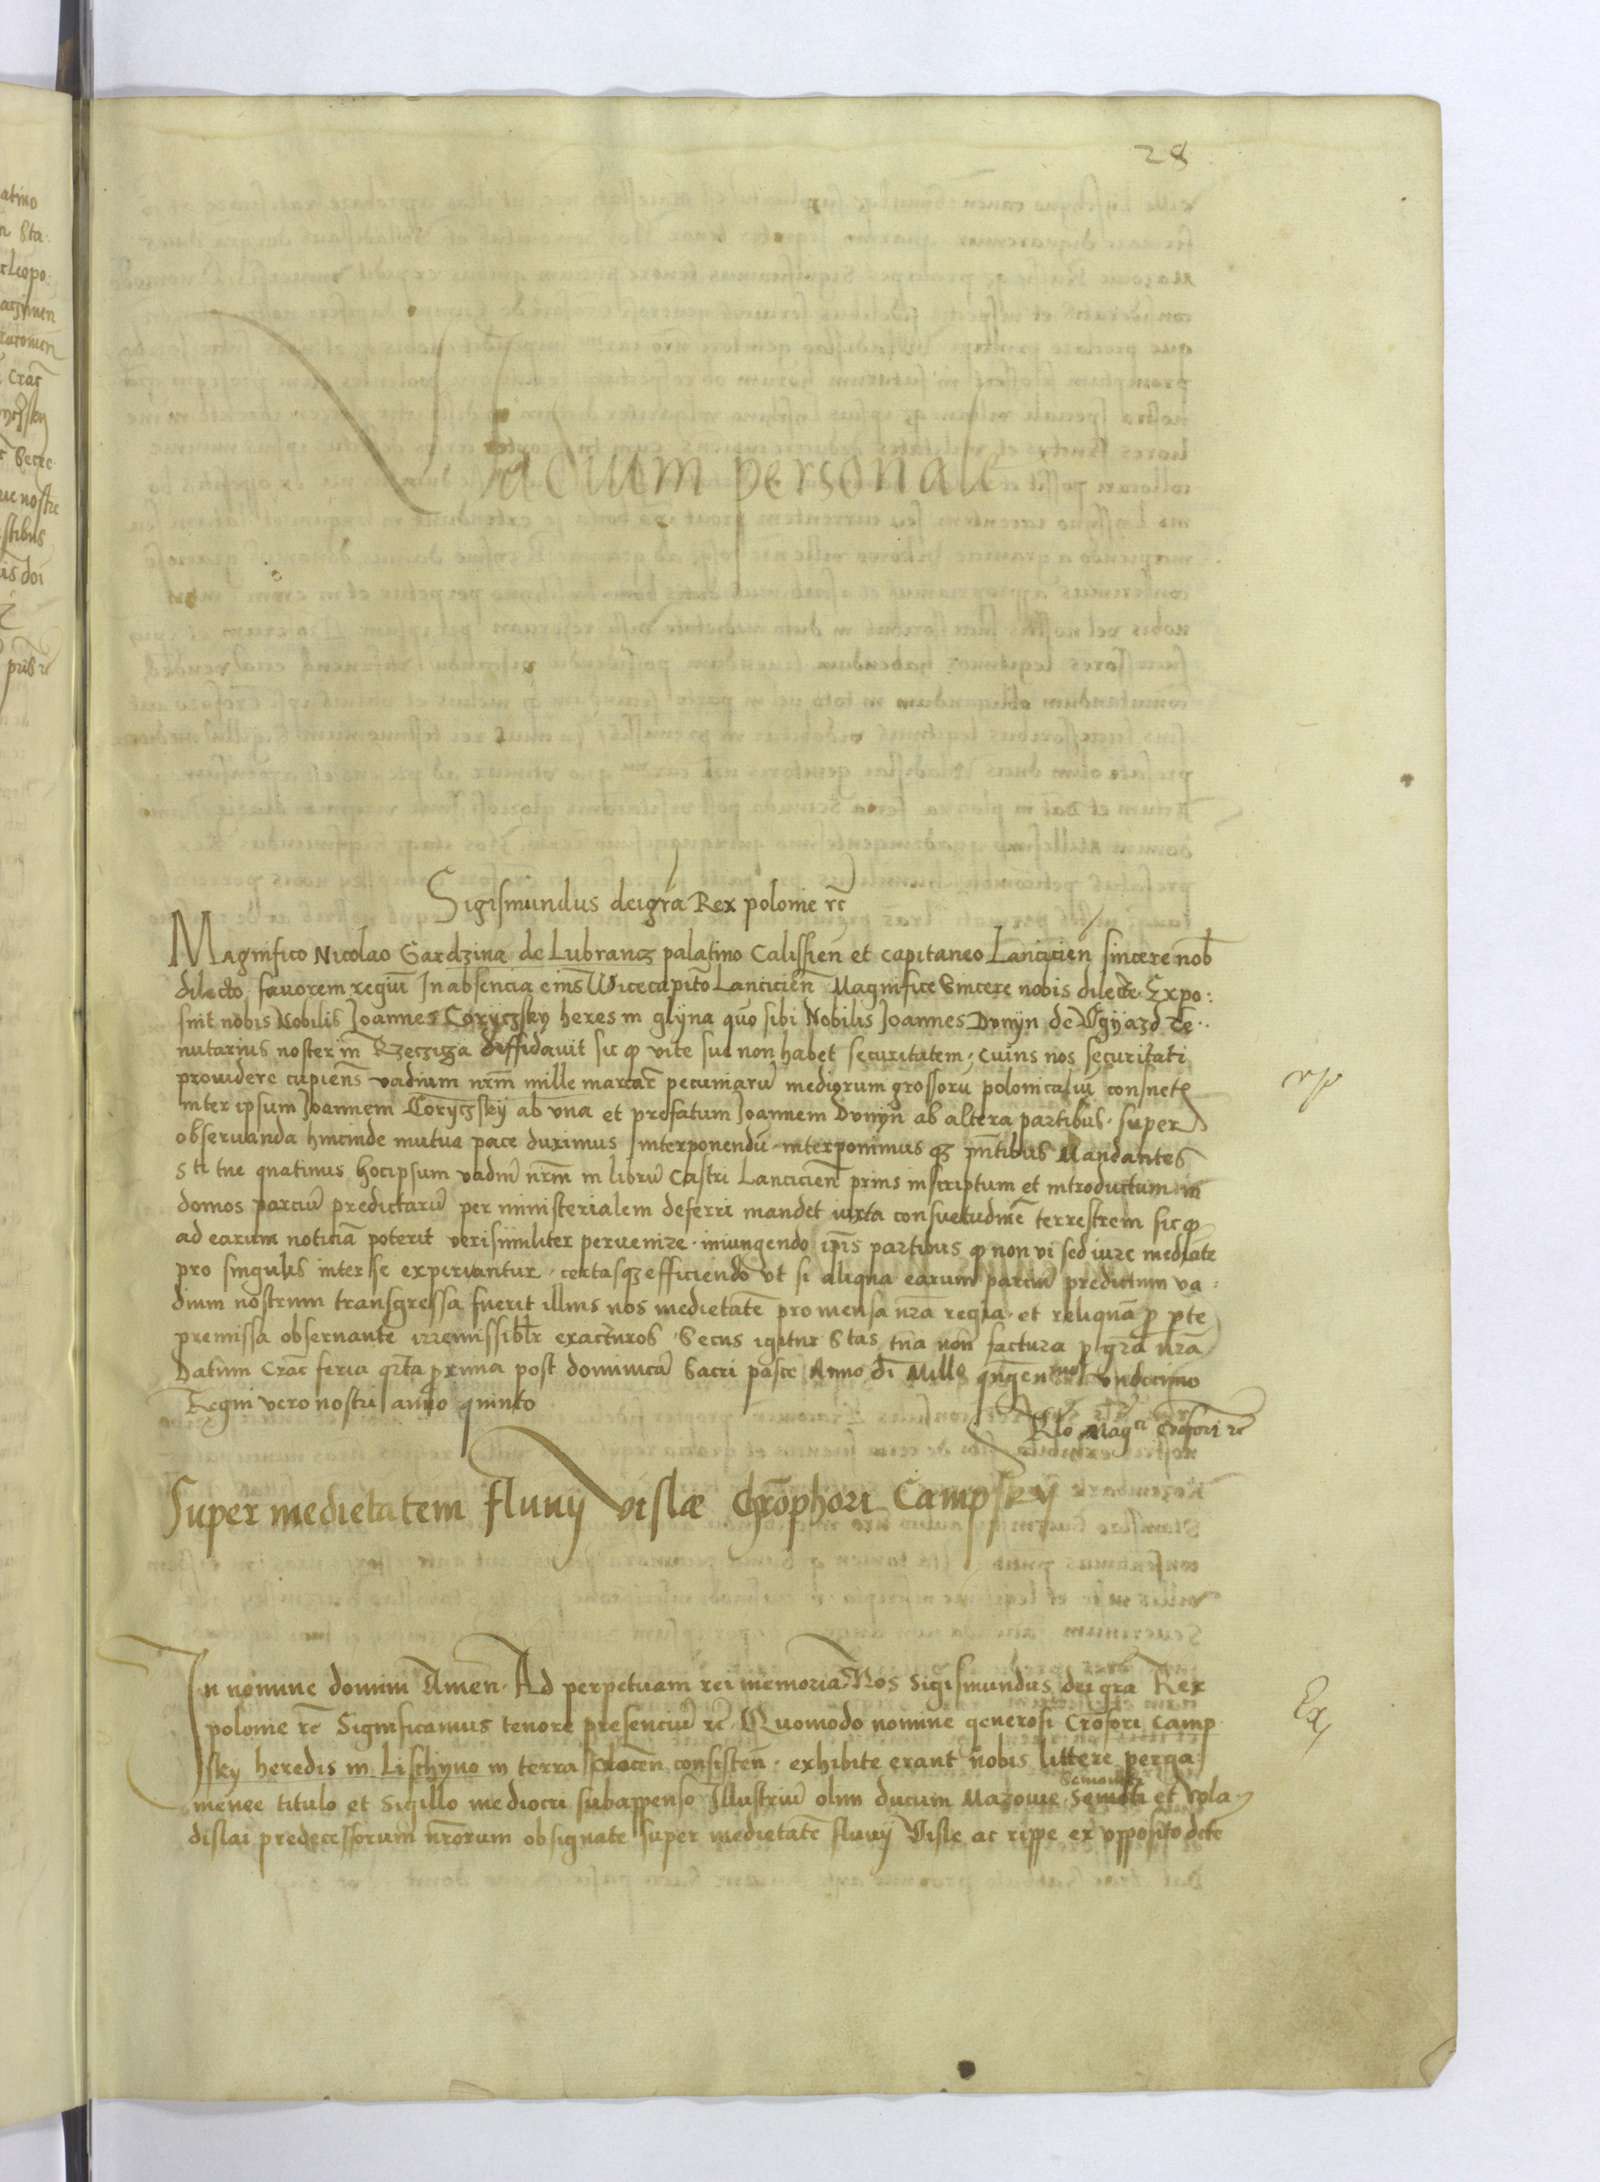 28
Vadium personale
Sigismundus dei grã Rex polonie rc̃
Magnifico Nicolao Gardzina de Lubrancz palatino Calissieñ et capitaneo Lancicieñ sincere nob̃
dilecto fauorem regiũ In absencia eius Vicecapitõ Lancicieñ Magnifice Sincere nobis dilecte. Expo:
suit nobis Nobilis Joannes Coryczsky heres in glyna quo sibi Nobilis Joannes Dunyn de Vyyazd Te..
nutarius noster in Rzecziza diffidauit sic ꝙ vite sue non habet securitatem, cuius nos securitati
prouidere cupiens vadium nr̃m mille marcar̃ pecuniarũ mediorum grossorũ polonicaliũ consuet
inter ipsum Joannem Coryczskÿ ab vna et prefatum Joannem Dunyn ab altera partibus. super
obseruanda hincinde mutua pace duximus interponendũ. interponimus qꝫ pñtibus Mandantes
S ti tue quatinus hocipsum vadiũ nr̃m in librũ Castri Lancicieñ prius inscriptum et introductum in
domos parciũ predictarũ per ministerialem deferri mandet iuxta consuetudinẽ terrestrem sic ꝙ
ad earum noticiã poterit verisimiliter peruenire. iniungendo ip̃is partibus ꝙ non vi sed iure mediãte
pro singulis inter se experiantur. certasqꝫ efficiendo vt si aliqua earum parciũ predictum va:
dium nostrum transgressa fuerit illius nos medietatẽ pro mensa nr̃a regia. et reliquã ꝓ pte
premissa obseruante irremissibl̃r exacturos. Secus igitur S tas tũa non factura ꝓ grã nr̃a
Datum Crac̃ feria qr̃ta prima post dominicã Sacri pasce Anno dñi Mill̃o qñgenmo vndecimo
Regni vero nostri anno quinto
Rlo Magci Crofori rc̃
Super medietatem fluuij vislæ Chrõphori Campsky
In nomine domini Amen. Ad perpetuam rei memoriã. Nos Sigismundus dei grã Rex
polonie rc̃ Significamus tenore presenciũ rc̃. Quomodo nomine generosi Crofori Camp
sky heredis in Lischyno in terra plocen̄ consisten̄. exhibite erant nobis littere perga:
menee titulo et Sigillo mediocri subappenso Illustriũ olim ducum Mazouie Semouiti et Vla
dislai predecessorum nr̃orum obsignate super medietatẽ fluuij Visle ac rippe ex opposito dc̃te
Ex